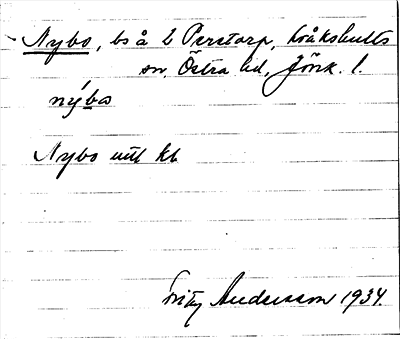 Nybo, bs å L Perstorp, Kråkshults
sn, Östra hd, Jönk. l.
nýbo
Nybo utt kb
Fritz Andersson 1934.